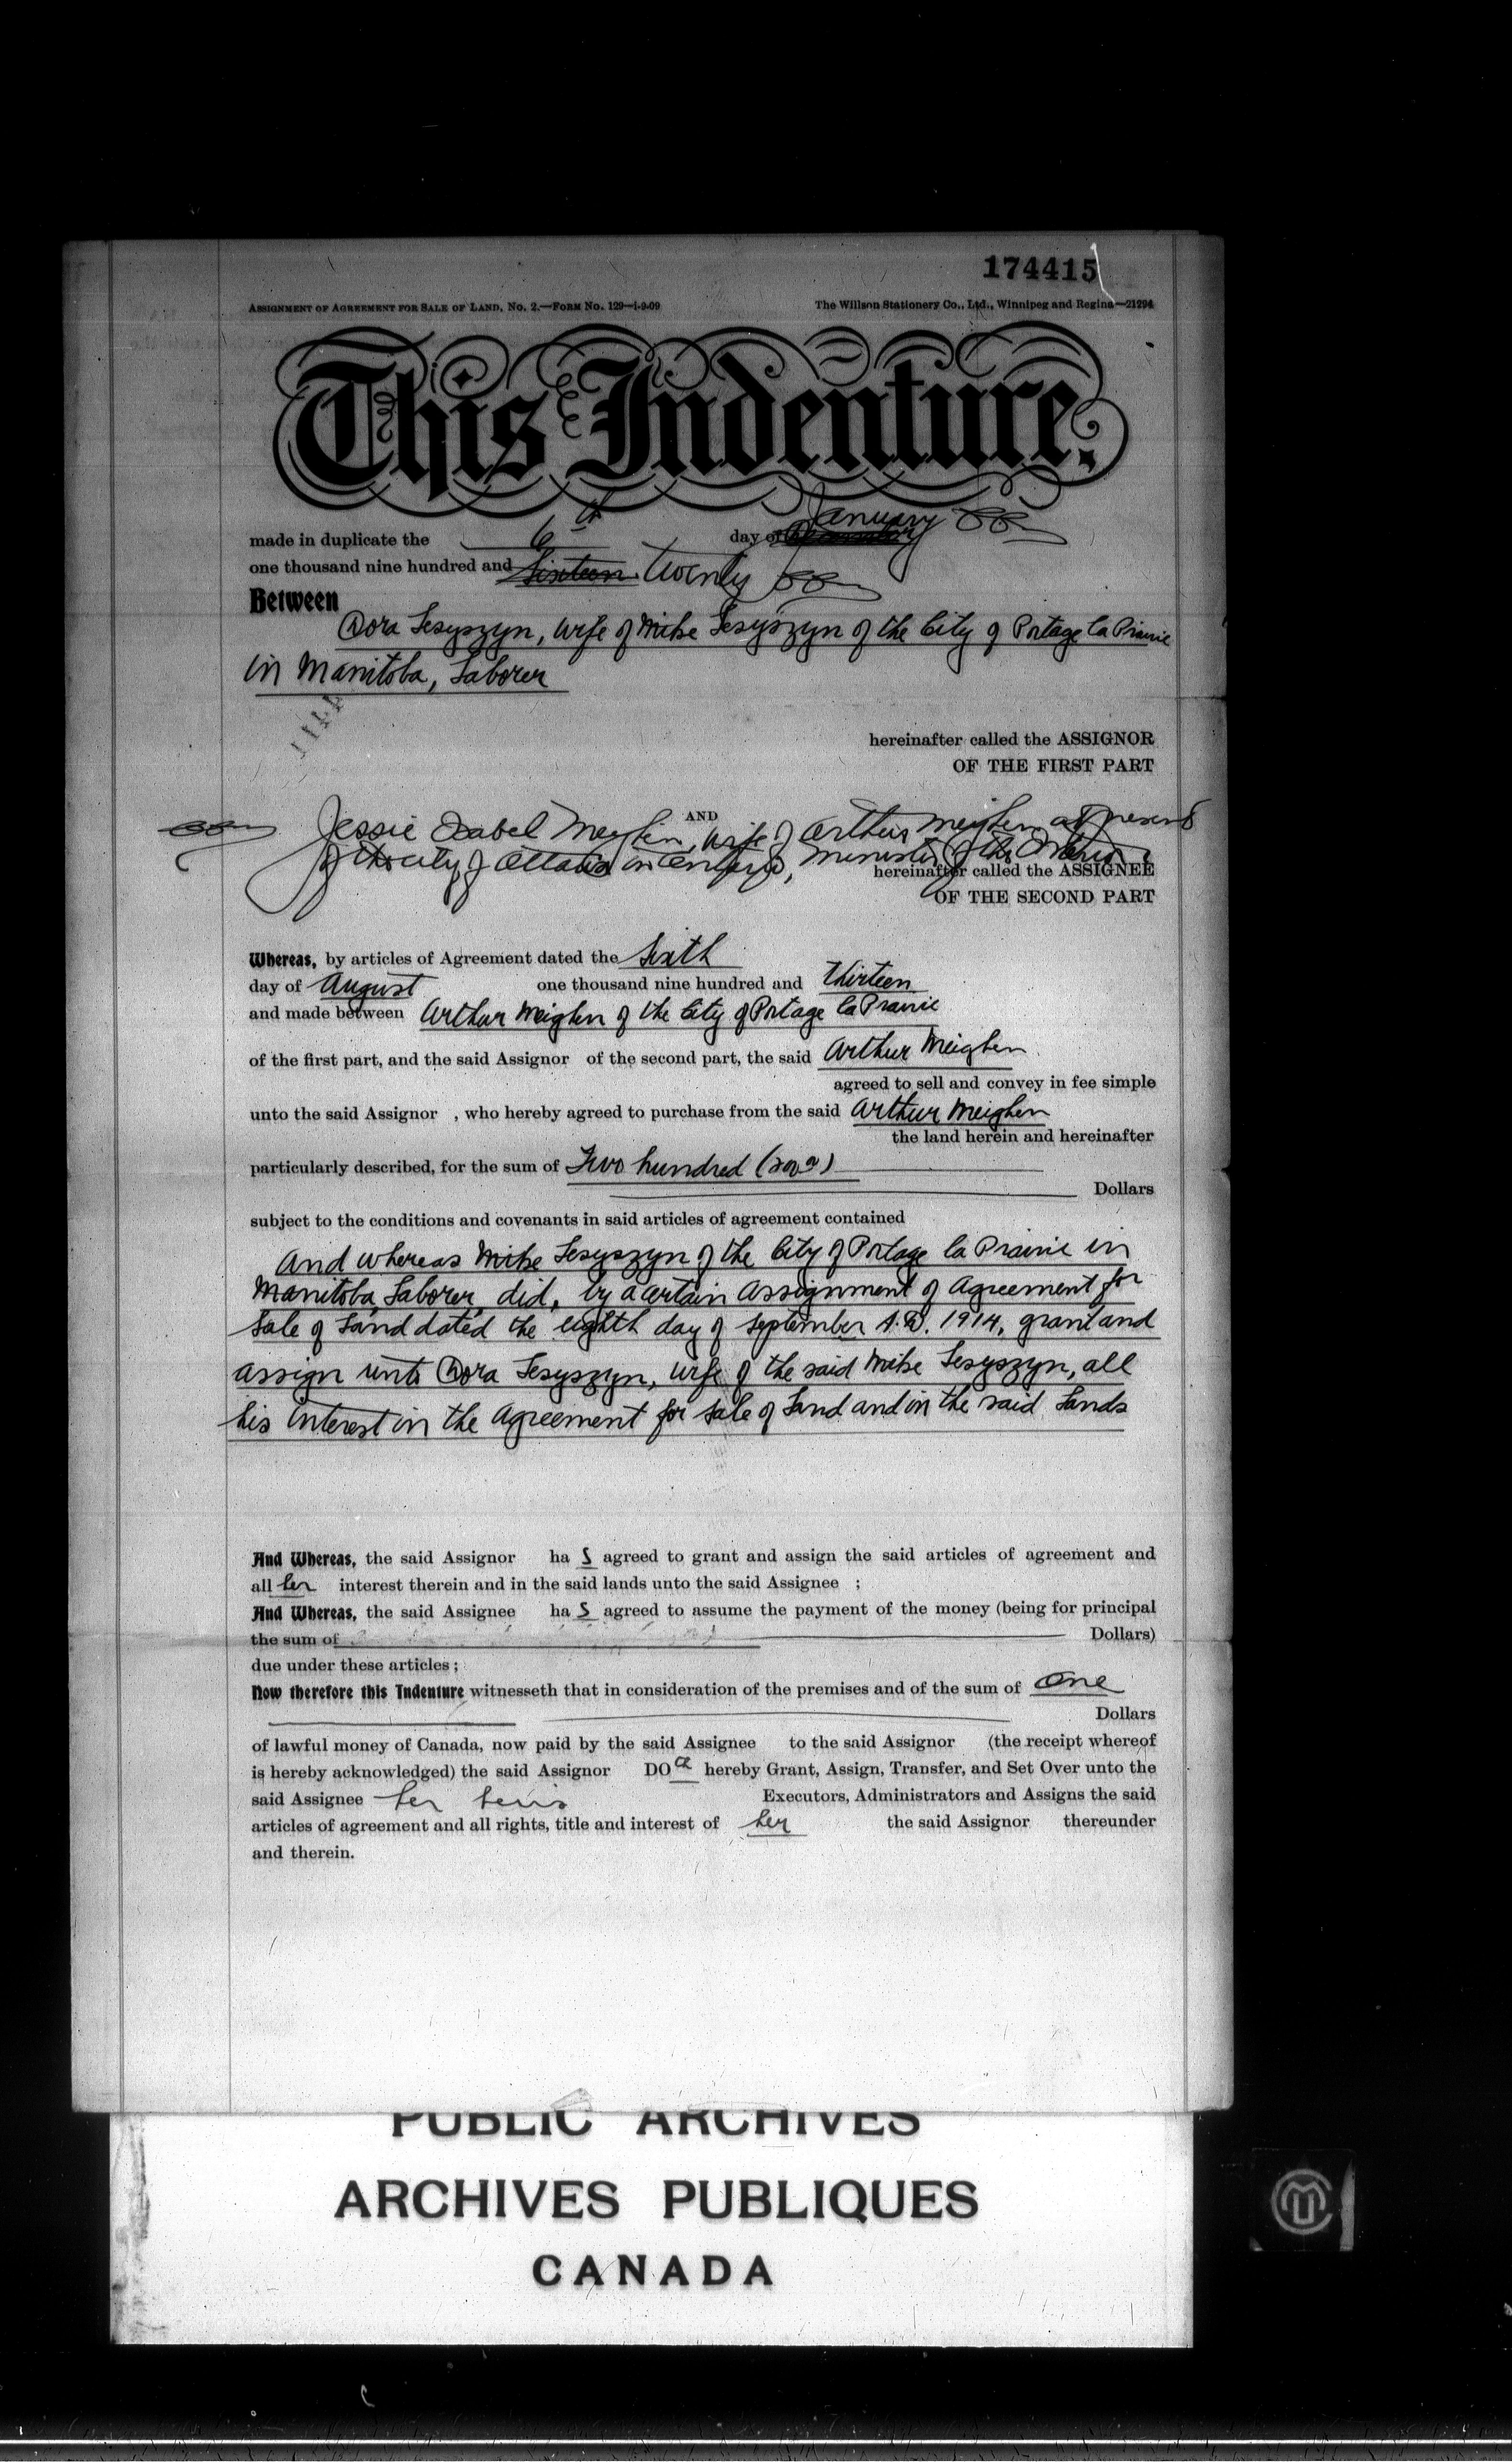 174415
ASSIGNMENT OF AGREEMENT FOR SALE OF LAND, No. 2.—FORM No. 129—1-9-09 The Willson Stationery Co., Ltd., Winnipeg and Regina—21294
This Indenture,
made in duplicate the 6th day of January
one thousand nine hundred and Sixteen twenty
Between
Dora Lesyszyn, wife of Mike Lesyszyn of the City of Portage la Prairie
in Manitoba, Laborer
hereinafter called the ASSIGNOR
OF THE FIRST PART
AND
Jessie Isabel Meighen, wife of Arthur Meighen at present
of the city of Ottawa in Ontario, Minister of the Interior
hereinafter called the ASSIGNEE
OF THE SECOND PART
Whereas, by articles of Agreement dated the Sixth
day of August one thousand nine hundred and thirteen
and made between Arthur Meighen of the City of Portage la Prairie
of the first part, and the said Assignor of the second part, the said Arthur Meighen
agreed to sell and convey in fee simple
unto the said Assignor , who hereby agreed to purchase from the said Arthur Meighen
the land herein and hereinafter
particularly described, for the sum of Two hundred
Dollars
subject to the conditions and covenants in said articles of agreement contained
And whereas Mike Lesyszyn of the City of Portage la Prairie in
Manitoba, Laborer, did, by a certain Assignment of Agreement for
Sale of Land dated the eighth day of September A.D. 1914, grant and
assign unto Dora Lesyszyn, wife of the said Mike Lesyszyn, all
his interest in the Agreement for Sale of Land and in the said Lands
And Whereas, the said Assignor ha s agreed to grant and assign the said articles of agreement and
all her interest therein and in the said lands unto the said Assignee ;
And Whereas, the said Assignee ha s agreed to assume the payment of the money (being for principal
the sum of Dollars)
due under these articles ;
Now therefore this Indenture witnesseth that in consideration of the premises and of the sum of One
Dollars
of lawful money of Canada, now paid by the said Assignee to the said Assignor (the receipt whereof
is hereby acknowledged) the said Assignor DO hereby Grant, Assign, Transfer, and Set Over unto the
said Assignee her heirs Executors, Administrators and Assigns the said
articles of agreement and all rights, title and interest of her the said Assignor thereunder
and therein.
PUBLIC ARCHIVES
ARCHIVES PUBLIQUES
CANADA